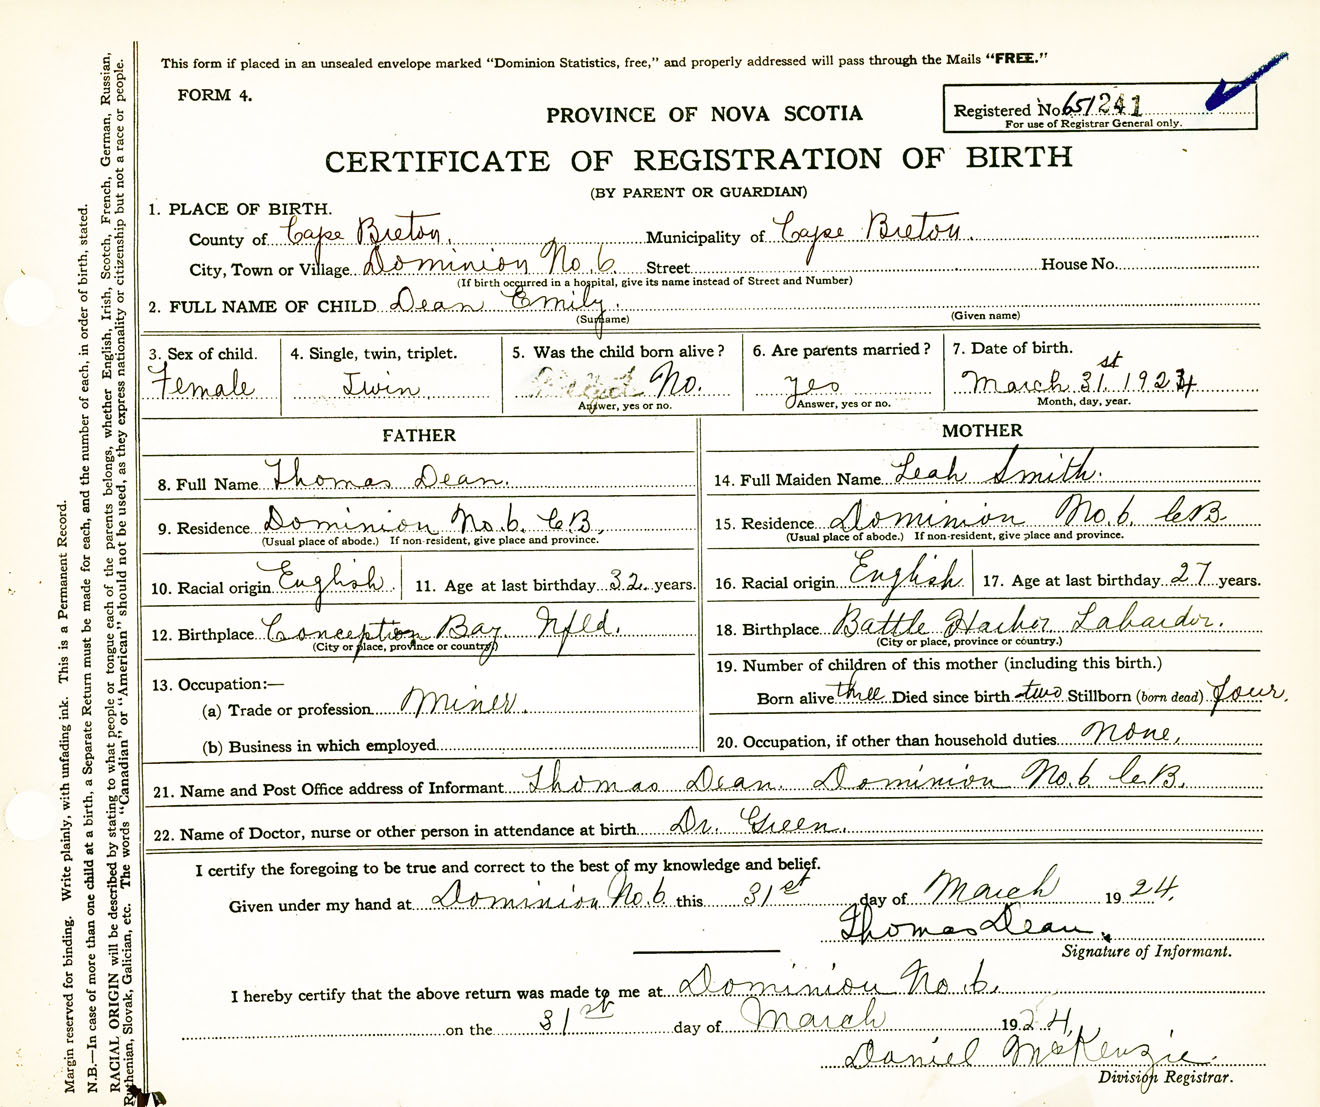 This form if placed in an unsealed envelope marked "Dominion Statistics, free," and properly addressed will pass through the Mails "FREE."
FORM 4.
PROVINCE OF NOVA SCOTIA
Registered No. 651241
For use of Registrar General only.
CERTIFICATE OF REGISTRATION OF BIRTH
(BY PARENT OR GUARDIAN)
1. PLACE OF BIRTH.
County of Cape Breton. Municipality of Cape Breton.
City, Town or Village Dominion No. 6. Street House No.
(If birth occurred in a hospital, give its name instead of Street and Number)
2. FULL NAME OF CHILD Dean Emily.
(Surname) (Given name)
3. Sex of child. 4. Single, twin, triplet. 5. Was the child born alive? 6. Are parents married? 7. Date of birth.
Female Twin No. yes March 31st 1924
Answer, yes or no. Answer, yes or no. Month, day, year.
FATHER MOTHER
8. Full Name Thomas Dean. 14. Full Maiden Name Leah Smith.
9. Residence Dominion No. 6. C.B. 15. Residence Dominion No. 6. C.B
(Usual place of abode.) If non-resident, give place and province. (Usual place of abode.) If non-resident, give place and province.
10. Racial origin English 11. Age at last birthday 32 years. 16. Racial origin English 17. Age at last birthday 27 years.
12. Birthplace Conception Bay Nfld. 18. Birthplace Battle Harbor Labardor.
(City or place, province or country) (City or place, province or country.)
19. Number of children of this mother (including this birth.)
13. Occupation:—
Born alive three Died since birth two Stillborn (born dead) four.
(a) Trade or profession Miner.
(b) Business in which employed 20. Occupation, if other than household duties None.
21. Name and Post Office address of Informant Thomas Dean. Dominion No. 6. C.B.
22. Name of Doctor, nurse or other person in attendance at birth Dr. Green.
I certify the foregoing to be true and correct to the best of my knowledge and belief.
Given under my hand at Dominion No. 6 this 31st day of March 1924.
Thomas Dean.
Signature of Informant.
I hereby certify that the above return was made to me at Dominion No. 6.
on the 31st day of March 1924,
Daniel McKenzie.
Division Registrar.
Margin reserved for binding. Write plainly, with unfading ink. This is a Permanent Record.
N.B.—In case of more than one child at a birth, a Separate Return must be made for each, and the number of each, in order of birth, stated.
RACIAL ORIGIN will be described by stating to what people or tongue each of the parents belongs, whether English, Irish, Scotch, French, German, Russian,
Ruthenian, Slovak, Galician, etc. The words "Canadian" or "American" should not be used, as they express nationality or citizenship but not a race or people.